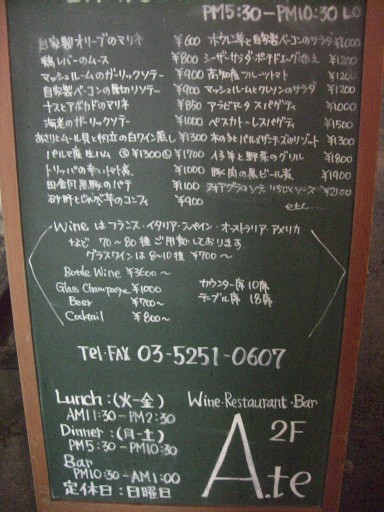 PM5:30-PM10:30 LO
自家製オリーブのマリネ ¥600
鶏レバーのムース ¥800
マッシュルームのガーリックソテー ¥900
自家製ベーコンの ソテー ¥900
ナスとアボカドのマリネ ¥850
海老のガーリックソテー ¥1000
あさりとムール貝と の白ワイン蒸し ¥1300
パルマ産生ハム Ⓢ¥1300 Ⓛ¥1700
トリッパの辛いトマト煮 ¥1100
田舎風 豚のパテ ¥1100
砂肝とじゃが芋のコンフィ ¥900
ホウレン草と自家製ベーコンのサラダ ¥1000
シーザーサラダ・ポテドエッグ添え ¥1200
高知産フルーツトマト ¥1200
マッシュルームとクレソンのサラダ ¥1200
アラビアータ スパゲティ ¥1000
ペスカトーレスパゲティ ¥1500
木の子とパルメザンチーズのリゾート ¥1300
イカ と野菜のグリル ¥1800
豚肉の黒ビール煮 ¥1900
フォアグラのソテー いちじくソース ¥2100
etc...
Wine はフランス・イタリア・スペイン・オーストラリア・アメリカ
など 70～80種ご用意しております。
グラスワインは 8～10種 ¥700～
Bottle Wine ¥3600～
Glass Champagne ¥1000
Beer ¥700～
Cocktail ¥800～
カウンター席 10席
テーブル席 18席
Tel・FAX 03-5251-0607
Lunch:(火-金)
AM11:30-PM2:30
Dinner:(月-土)
PM5:30-PM10:30
Bar
PM10:30-AM1:00
定休日:日曜日
Wine・Restaurant・Bar
2F
A.te